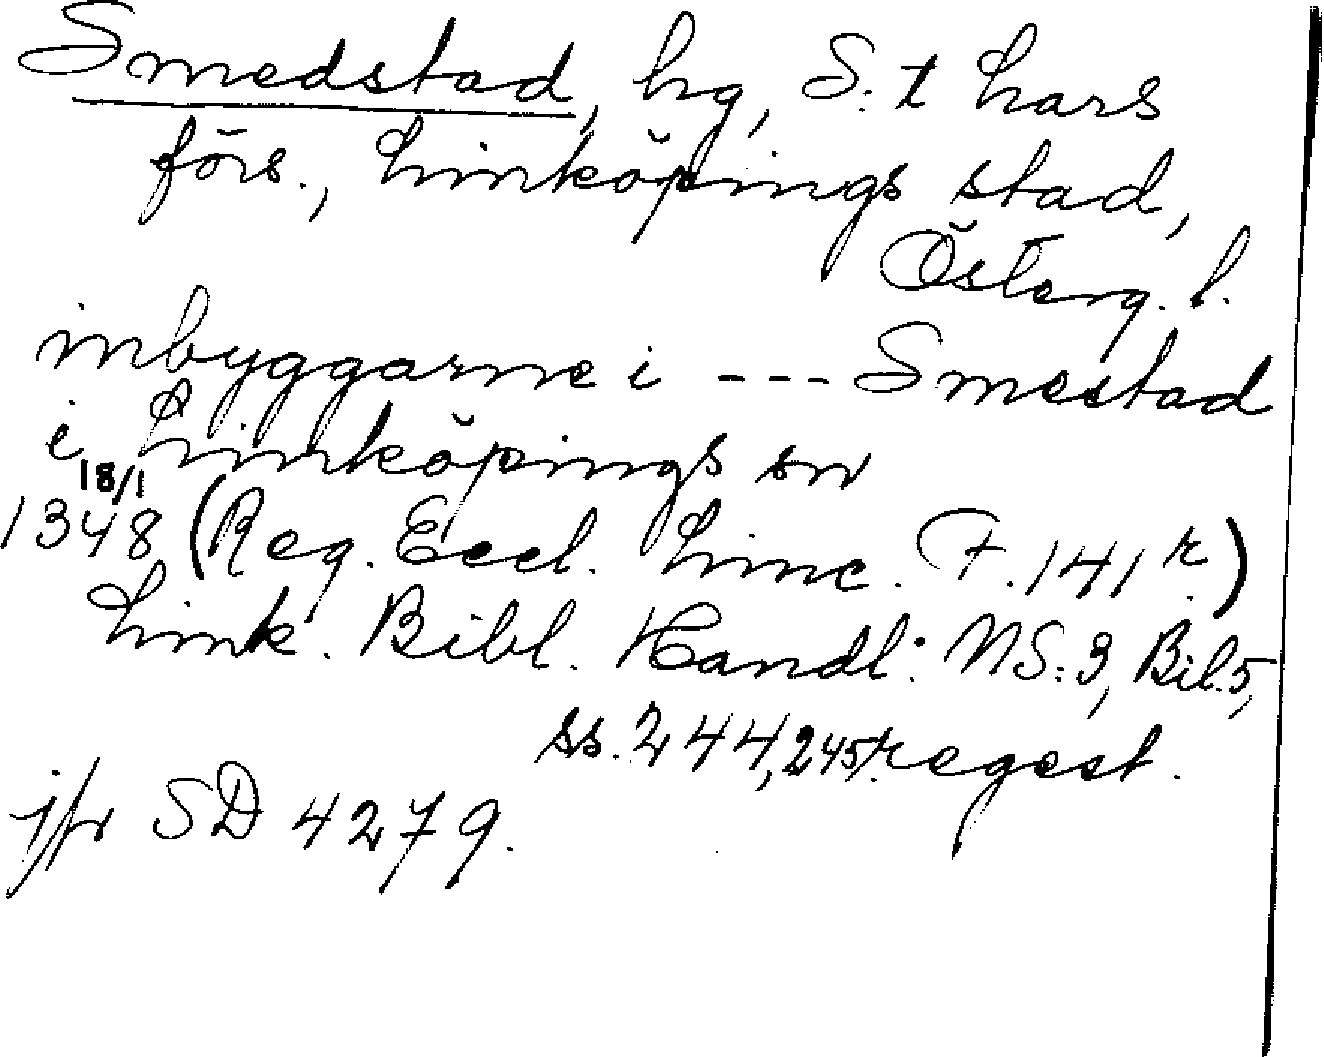 Smedstad, hg, S:t Lars
förs., Linköpings stad,
Österg. l.
inbyggarne i --- Smestad
i Linköpings sn
18/1
1348 (Reg. Eccl. Linc. F. 141 r.)
Link. Bibl. Handl: NS: 3, Bil. 5,
ss. 244, 245, regest.
jfr SD 4279.